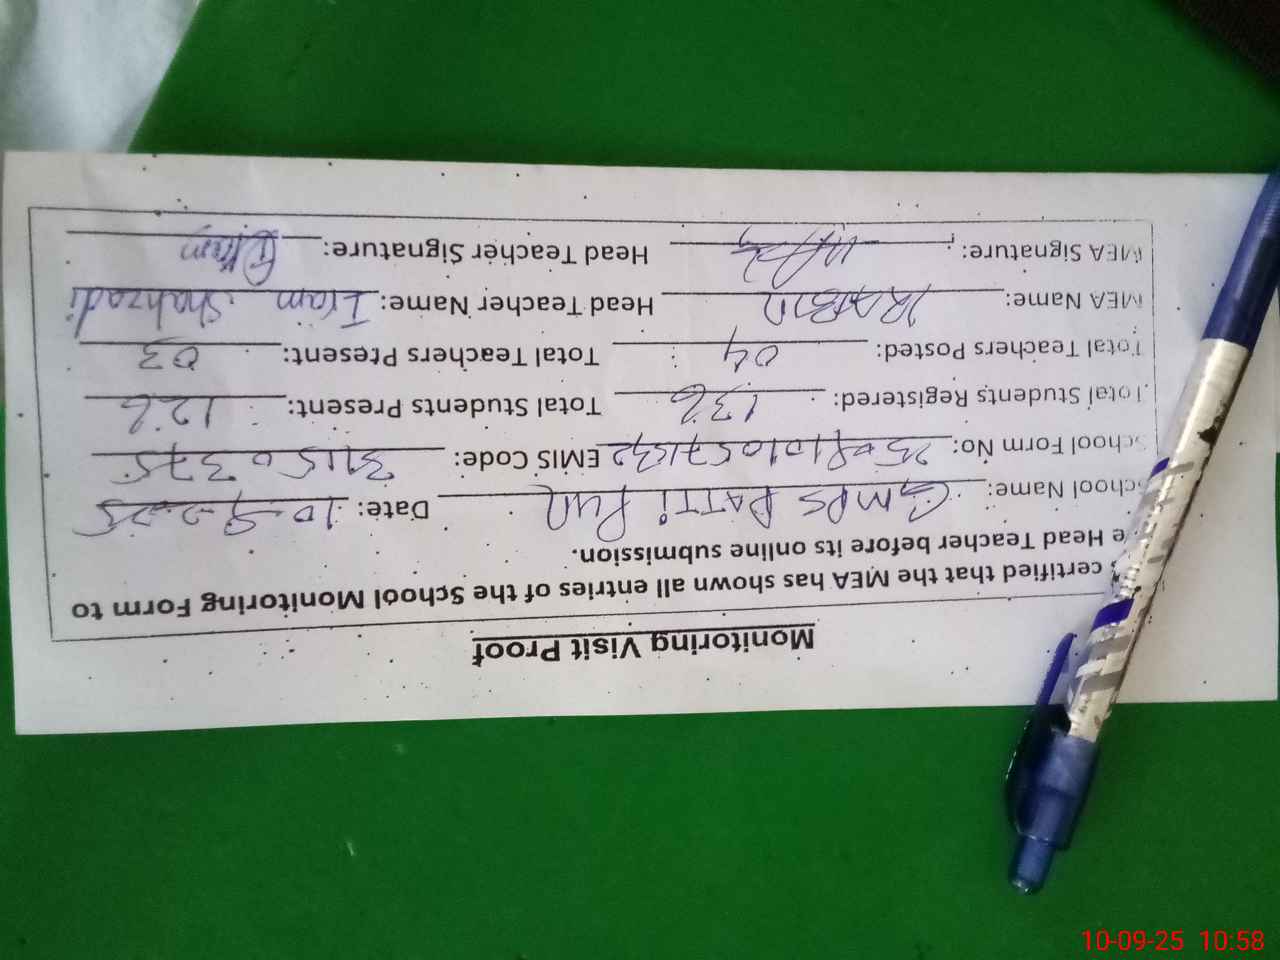 Monitoring Visit Proof
s certified that the MEA has shown all entries of the School Monitoring Form to
e Head Teacher before its online submission.
School Name: GMPS PATTI Pun Date: 10-9-2025
School Form No: EMIS Code: 31150375
Total Students Registered: 136 Total Students Present: 126
Total Teachers Posted: 04 Total Teachers Present: 03
MEA Name: Head Teacher Name: Iram Shahzadi
MEA Signature: Head Teacher Signature: Iram
10-09-25 10:58